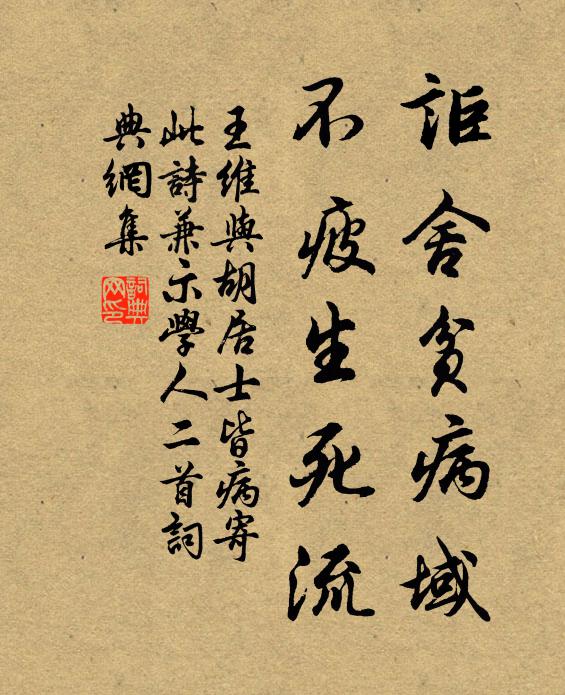 詎舍貧病域
不疲生死流
王維與胡居士皆病寄
此詩兼示學人二首詞
典網集
詞典
网印